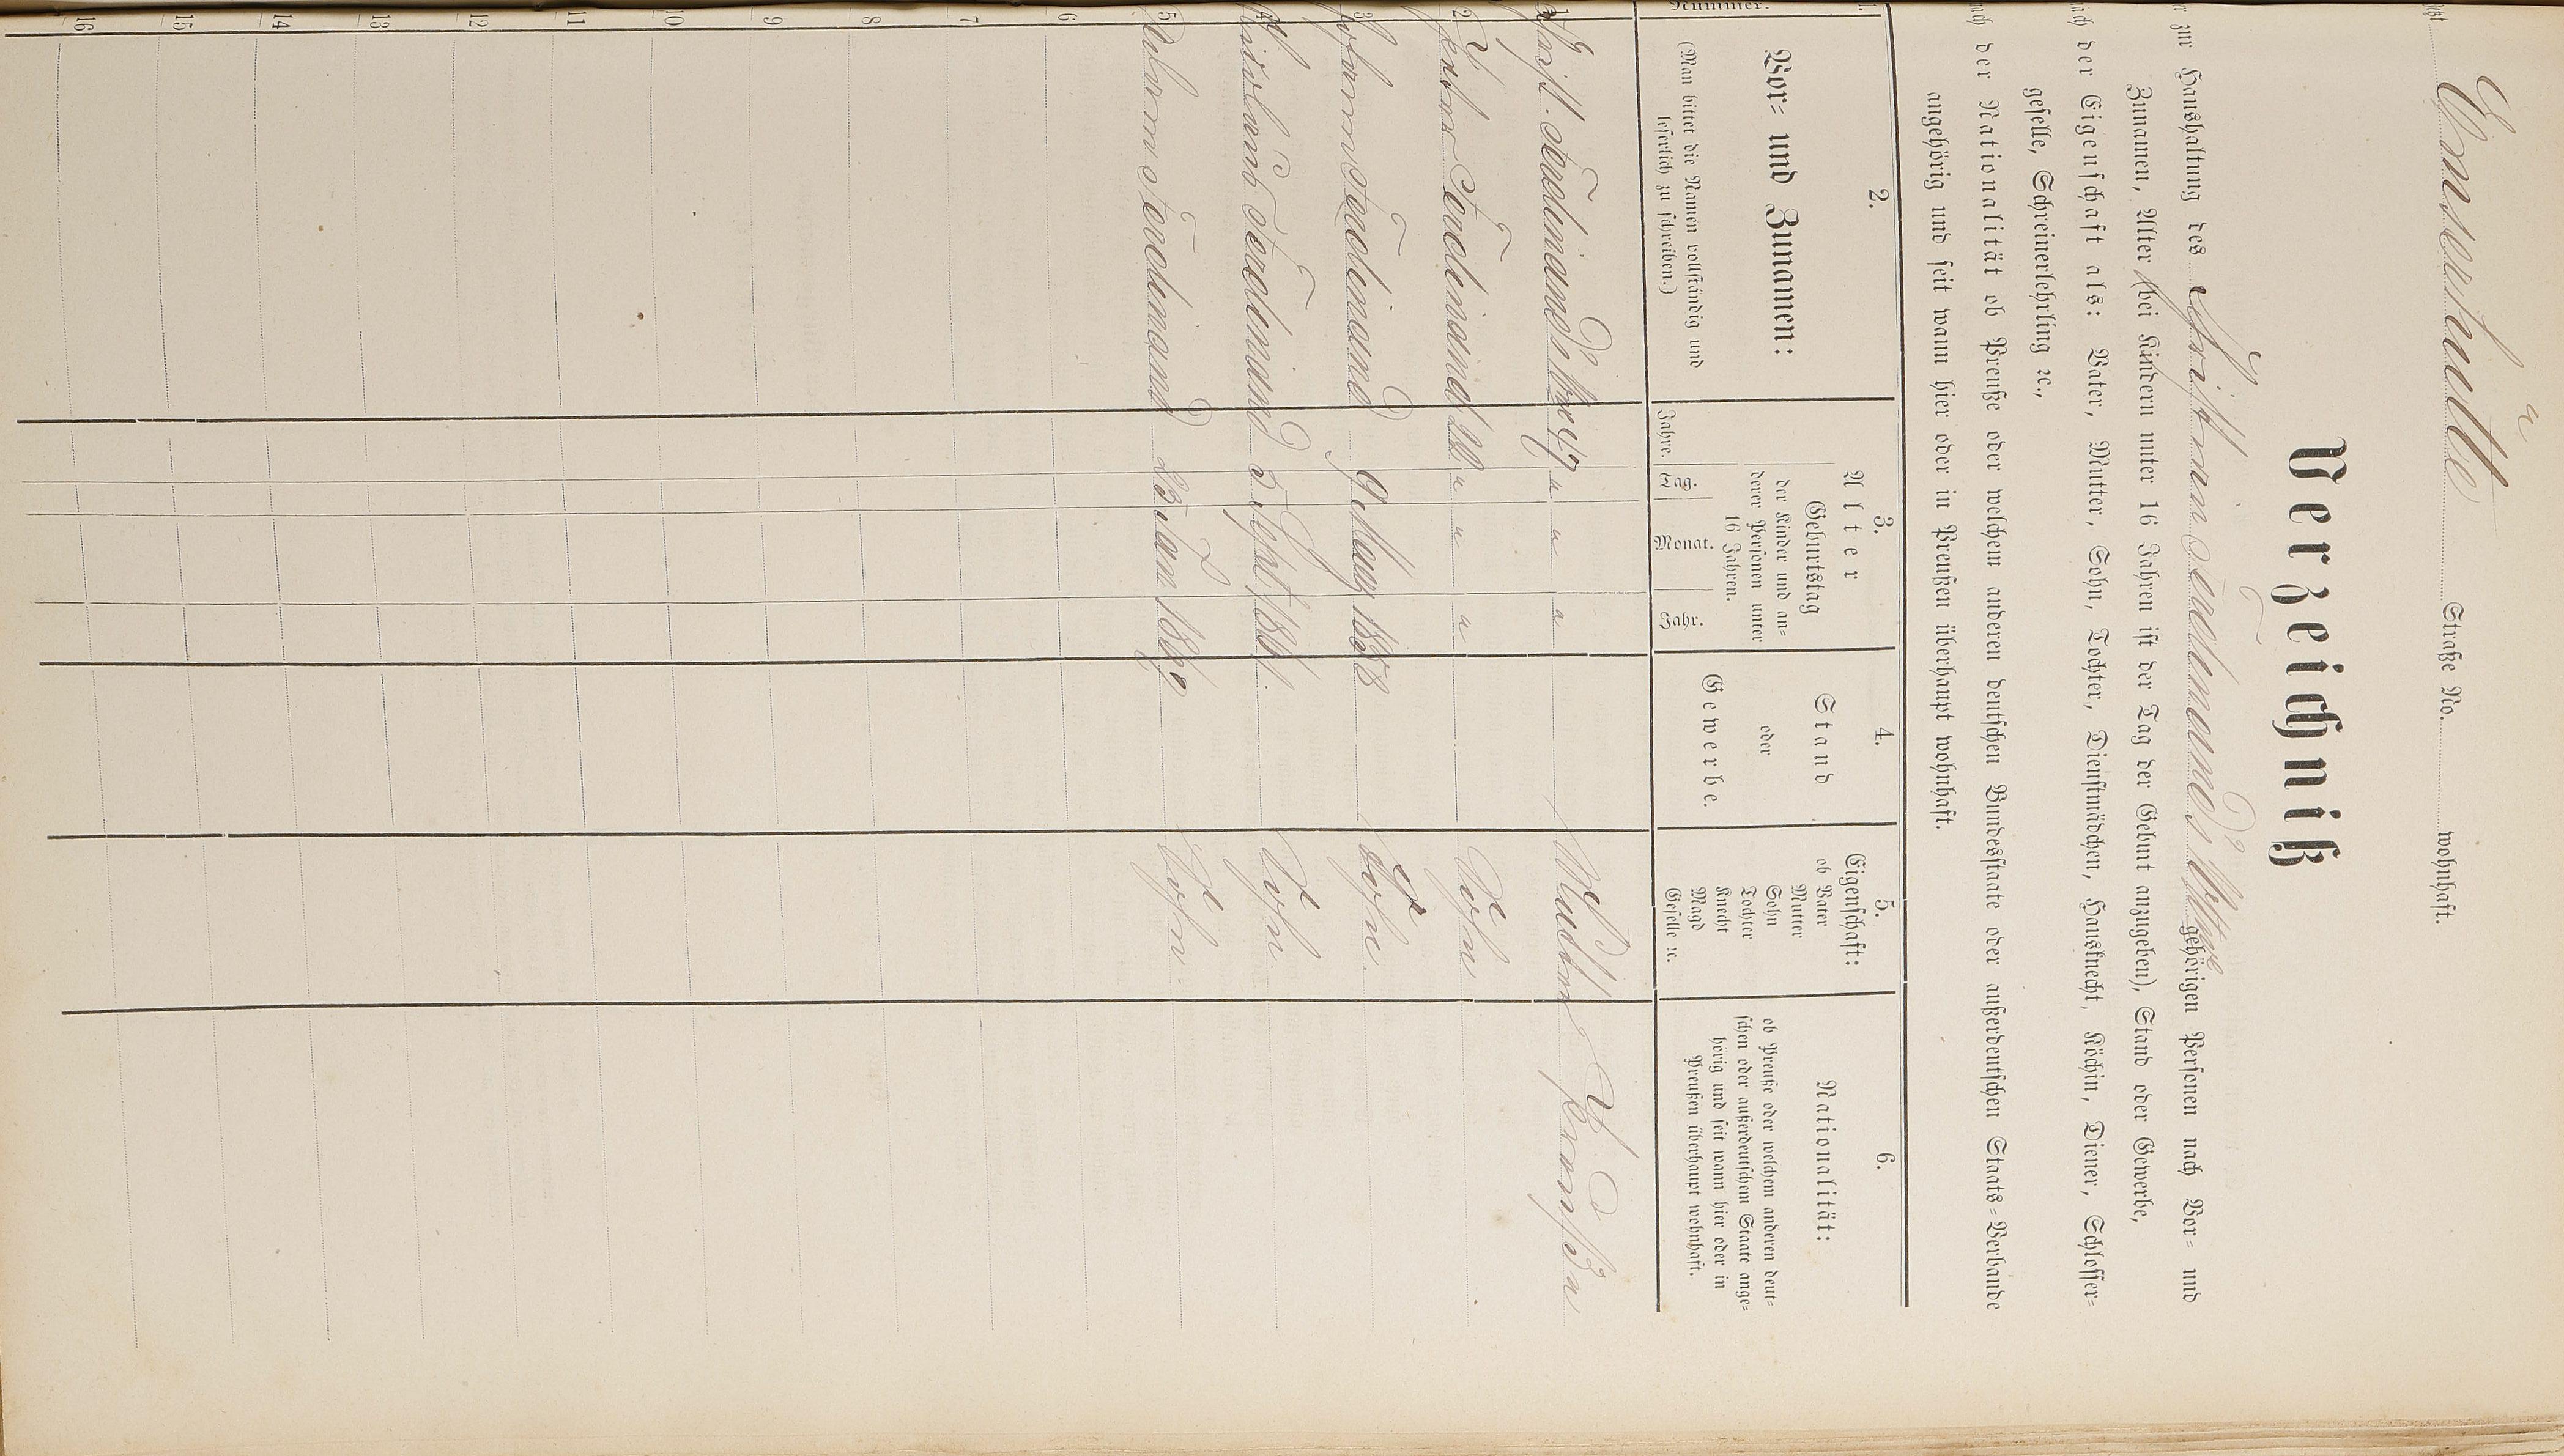 Emserhutte Straße No. wohnhaft.
Verzeichniß
zur Haushaltung des Ferdinands Wttwe gehörigen Personen nach Vor= und
Zunamen, Alter (bei Kindern unter 16 Jahren ist der Tag der Geburt anzugeben), Stand oder Gewerbe,
nach der Eigenschaft als: Vater, Mutter, Sohn, Tochter, Dienstmädchen, Hausknecht, Köchin, Diener, Schlosser=
geselle, Schreinerlehrling ꝛc.,
nach der Nationalität ob Preuße oder welchem anderen deutschen Bundesstaate oder außerdeutschen Staats=Verbande
angehörig und seit wann hier oder in Preußen überhaupt wohnhaft.
1. 2. 3. 4. 5. 6.
Nummer.
Vor= und Zunamen:
(Man bittet die Namen vollständig und
leserlich zu schreiben.)
Alter
Jahre.
Geburtstag
der Kinder und an=
derer Personen unter
16 Jahren.
Tag. Monat. Jahr.
Stand
oder
Gewerbe.
Eigenschaft:
ob Vater
Mutter
Sohn
Tochter
Knecht
Magd
Geselle ꝛc.
Nationalität:
ob Preuße oder welchem anderen deut=
schen oder außerdeutschem Staate ange=
hörig und seit wann hier oder in
Preußen überhaupt wohnhaft.
1 Ferdinands Wwe 47 " " " Mutter
2 Peter Ferdinand 22 " " " Sohn
3 Johann Ferdinand 9 May 1858 Sohn.
4 Ferdinand 5 Sept 1861. Sohn.
5 Adam Ferdinand 23 Jan 1869 Sohn.
6
7
8
9
10
11
12
13
14
15
16